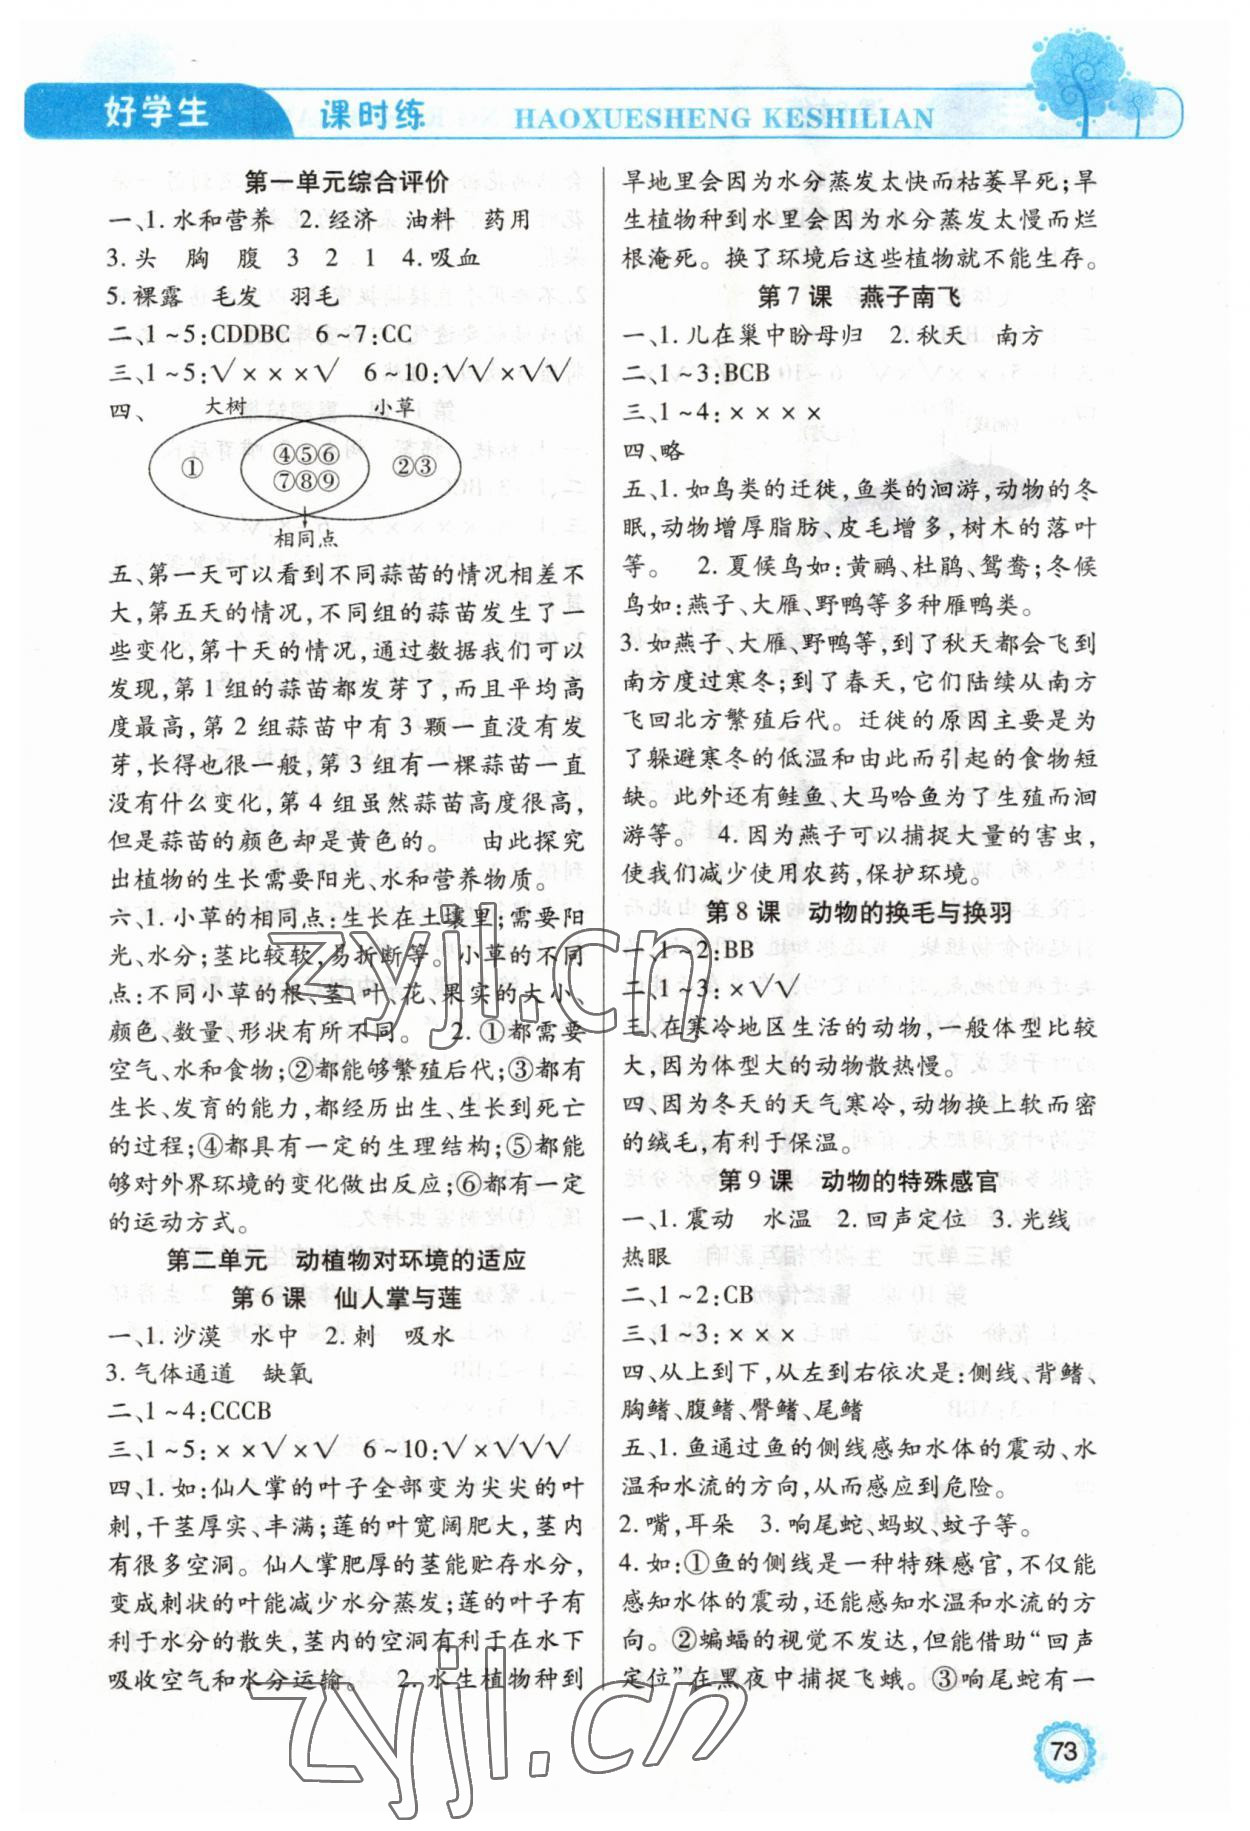 好学生 课时练 HAOXUESHENG KESHILIAN
第一单元综合评价
一、1.水和营养 2.经济 油料 药用
3.头 胸 腹 3 2 1 4.吸血
5.裸露 毛发 羽毛
二、1~5:CDDBC 6~7:CC
三、1~5:√×××√ 6~10:√√×√√
四、
大树 小草
① ④⑤⑥ ②③
⑦⑧⑨
相同点
五、第一天可以看到不同蒜苗的情况相差不
大,第五天的情况,不同组的蒜苗发生了一
些变化,第十天的情况,通过数据我们可以
发现,第1组的蒜苗都发芽了,而且平均高
度最高,第2组蒜苗中有3颗一直没有发
芽,长得也很一般,第3组有一棵蒜苗一直
没有什么变化,第4组虽然蒜苗高度很高,
但是蒜苗的颜色却是黄色的。 由此探究
出植物的生长需要阳光、水和营养物质。
六、1.小草的相同点:生长在土壤里;需要阳
光、水分;茎比较软,易折断等。小草的不同
点:不同小草的根、茎、叶、花、果实的大小、
颜色、数量、形状有所不同。 2.①都需要
空气、水和食物;②都能够繁殖后代;③都有
生长、发育的能力,都经历出生、生长到死亡
的过程;④都具有一定的生理结构;⑤都能
够对外界环境的变化做出反应;⑥都有一定
的运动方式。
第二单元 动植物对环境的适应
第6课 仙人掌与莲
一、1.沙漠 水中 2.刺 吸水
3.气体通道 缺氧
二、1~4:CCCB
三、1~5:××√×√ 6~10:√×√√√
四、1.如:仙人掌的叶子全部变为尖尖的叶
刺,干茎厚实、丰满;莲的叶宽阔肥大,茎内
有很多空洞。仙人掌肥厚的茎能贮存水分,
变成刺状的叶能减少水分蒸发;莲的叶子有
利于水分的散失,茎内的空洞有利于在水下
吸收空气和水分运输。 2.水生植物种到
旱地里会因为水分蒸发太快而枯萎旱死;旱
生植物种到水里会因为水分蒸发太慢而烂
根淹死。换了环境后这些植物就不能生存。
第7课 燕子南飞
一、1.儿在巢中盼母归 2.秋天 南方
二、1~3:BCB
三、1~4:××××
四、略
五、1.如鸟类的迁徙,鱼类的洄游,动物的冬
眠,动物增厚脂肪、皮毛增多,树木的落叶
等。 2.夏候鸟如:黄鹂、杜鹃、鸳鸯;冬候
鸟如:燕子、大雁、野鸭等多种雁鸭类。
3.如燕子、大雁、野鸭等,到了秋天都会飞到
南方度过寒冬;到了春天,它们陆续从南方
飞回北方繁殖后代。迁徙的原因主要是为
了躲避寒冬的低温和由此而引起的食物短
缺。此外还有鲑鱼、大马哈鱼为了生殖而洄
游等。 4.因为燕子可以捕捉大量的害虫,
使我们减少使用农药,保护环境。
第8课 动物的换毛与换羽
一、1~2:BB
二、1~3:×√√
三、在寒冷地区生活的动物,一般体型比较
大,因为体型大的动物散热慢。
四、因为冬天的天气寒冷,动物换上软而密
的绒毛,有利于保温。
第9课 动物的特殊感官
一、1.震动 水温 2.回声定位 3.光线
热眼
二、1~2:CB
三、1~3:×××
四、从上到下,从左到右依次是:侧线、背鳍、
胸鳍、腹鳍、臀鳍、尾鳍
五、1.鱼通过鱼的侧线感知水体的震动、水
温和水流的方向,从而感应到危险。
2.嘴,耳朵 3.响尾蛇、蚂蚁、蚊子等。
4.如:①鱼的侧线是一种特殊感官,不仅能
感知水体的震动,还能感知水温和水流的方
向。②蝙蝠的视觉不发达,但能借助“回声
定位”在黑夜中捕捉飞蛾。③响尾蛇有一
zyjl.cn
zyjl.cn
73